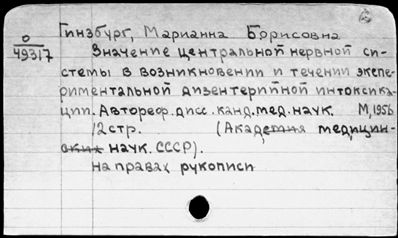 Гинзбург, Марианна Борисовна
О
49317
Значение центральной нервной си-
стемы в возникновении и течении экспе-
риментальной дизентерийной интоксика-
ции. Автореф. дисс. канд. мед. наук. М, 1956
12 стр. (Академия медицин-
ских наук. СССР).
на правах рукописи